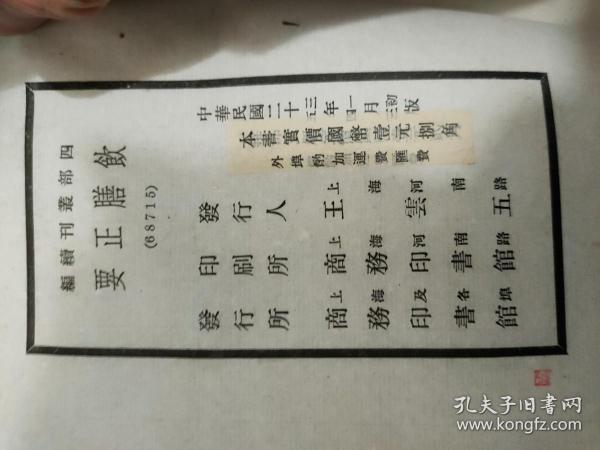 四部叢刊續編
飲膳正要
(68715)
中華民國二十三五年一四月初三版
本書實價國幣壹元捌角
外埠酌加運費匯費
發行人 王雲五
上海河南路
印刷所 商務印書館
上海河南路
發行所 商務印書館
上海及各埠
孔夫子旧书网
www.kongfz.com